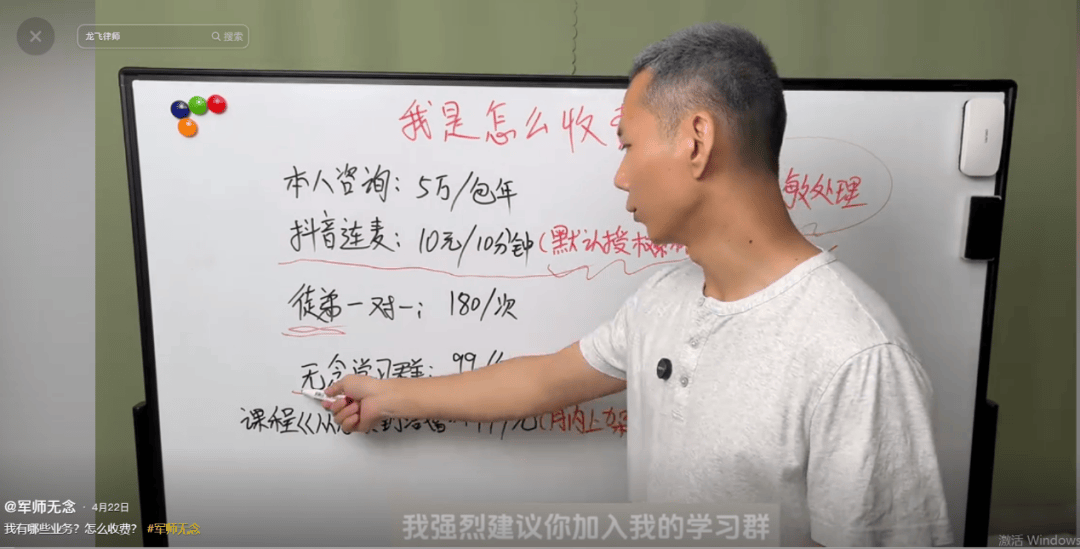 龙飞律师 搜索
我是怎么收
本人咨询：5万/包年
敏处理
抖音连麦：10元/10分钟(默认授权
徒弟一对一：180/次
无念学习群：99
课程《从
元(月内上架
@军师无念 · 4月22日
我有哪些业务？怎么收费？ #军师无念
我强烈建议你加入我的学习群
激活 Windows